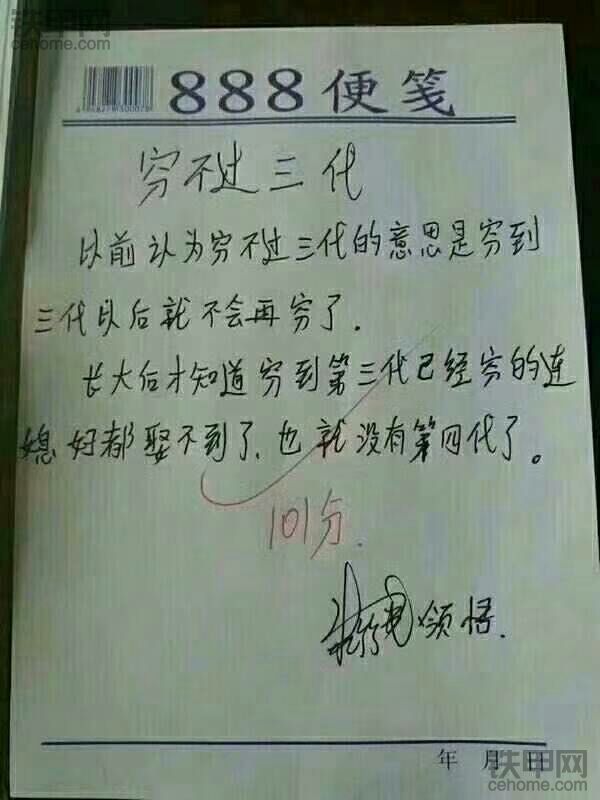 铁甲网
cehome.com
888便笺
穷不过三代
以前认为穷不过三代的意思是穷到
三代以后就不会再穷了.
长大后才知道穷到第三代已经穷的连
媳妇都娶不到了、也就没有第四代了。
101分.
领悟.
年 月 日
铁甲网
cehome.com